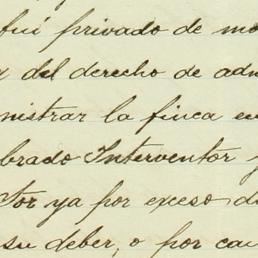 fuí privado de mo
del derecho de adm
nistrar la finca en
brado Interventor y
tor ya por exceso d
su deber, o por cau